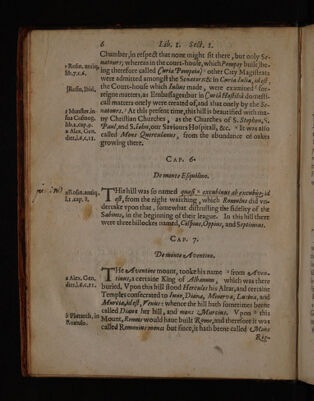 6 Lib. 1. Sect. 1.
Chamber, in respect that none might sit there, but only Se-
natours; whereas in the court-house, which Pompey built, (be-
ing therefore called Curia Pompeia) other City Magistrats
were admitted amongst the Senators: & in Curia Iulia, id est,
the Court-house which Iulius made, were examined forr-
reigne matters, as Embassages: but in Curiâ Hostiliâ domesti-
call matters onely were treated of, and that onely by the Se-
natours. At this present time, this hill is beautified with ma-
ny Christian Churches, as the Churches of S. Stephen, S.
Paul, and S. Iohn, our Saviours Hospitall, &c. It was also
called Mons Querculanus, from the abundance of oakes
growing there.
CAP. 6.
De monte Esquilino.
THis hill was so named quasi excubinus ab excubijs; id
est, from the night watching, which Romulus did un-
dertake upon that, somewhat distrusting the fidelity of the
Sabines, in the beginning of their league. In this hill there
were three hillockes named, Cispius, Oppius, and Septimius.
CAP. 7.
De monte Aventino.
THe Aventine mount, tooke his name from Aven-
tinus, a certaine King of Albanum, which was there
buried. Upon this hill stood Hercules his Altar, and certaine
Temples consecrated to Iuno, Diana, Minerva, Lucina, and
Murcia, id est, Venus: whence the hill hath sometimes beene
called Diana her hill, and mons Murcius. Upon this
Mount, Remus would have built Rome, and therefore it was
called Remonius mons: but since, it hath beene called Mons
Reg-
Rosin. antiq.
lib. 7. c. 6.
Rosin. ibid.
Munster. in
sua Cosmog.
lib. 2. cap. 9.
Alex. Gen.
dier. l. 6. c. 11.
Rosin. antiq.
l. 1. cap. 8.
Alex. Gen.
dier. l. 6. c. 11.
Plutarch. in
Romulo.